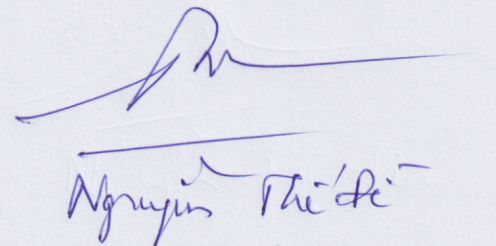 Nguyễn Thế Đê